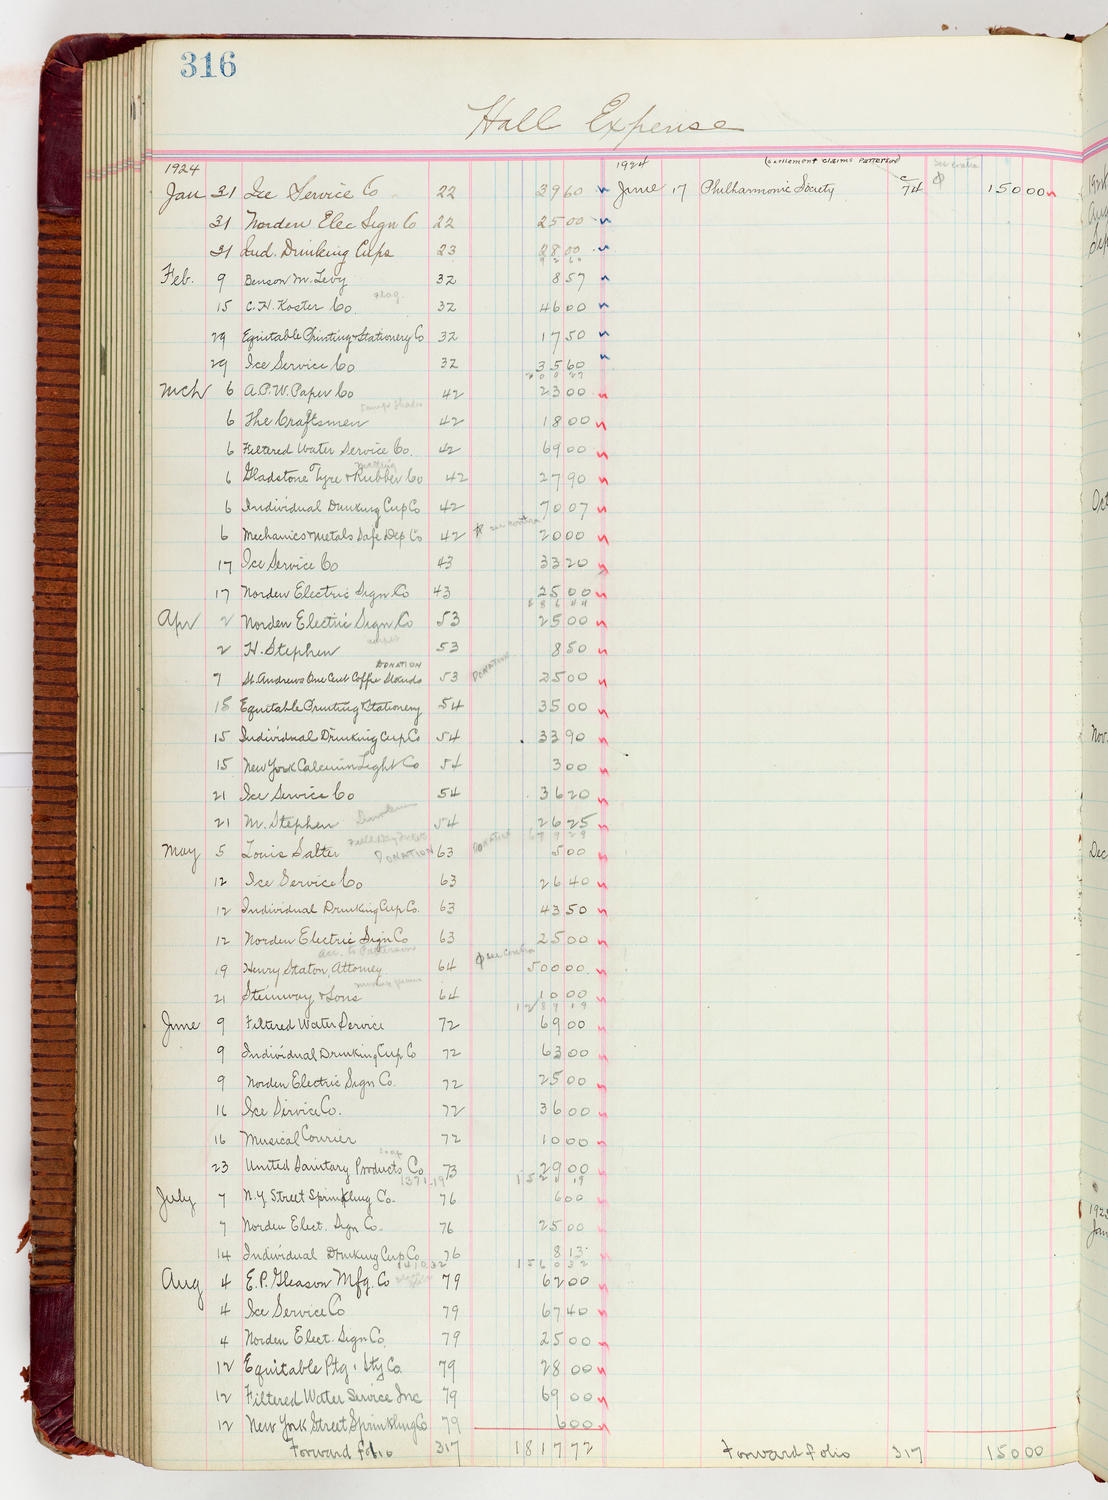 316
Hall Expense
1924
Jan 31 Ice Service Co 22 39 60
31 Norden Elec Sign Co 22 25 00
31 Ind. Drinking Cups 23 28 00
92 60
Feb. 9 Benson M. Levy 32 8 57
flag.
15 C. H. Koster Co. 32 46 00
29 Equitable Printing & Stationery Co 32 17 50
29 Ice Service Co 32 35 60
Mch 6 A.P.W. Paper Co 42 23 00
6 The Craftsmen 42 18 00
6 Filtered Water Service Co. 42 69 00
matting
6 Gladstone Tyre & Rubber Co 42 27 90
6 Individual Drinking Cup Co 42 70 07
see contra
6 Mechanics & Metals Safe Dep Co 42 20 00
17 Ice Service Co 43 33 20
17 Norden Electric Sign Co 43 25 00
Apr 2 Norden Electric Sign Co 53 25 00
2 H. Stephen 53 8 50
DONATION
7 St. Andrews One Cent Coffee Stands 53 DONATION 25 00
15 Equitable Printing & Stationery 54 35 00
15 Individual Drinking Cup Co 54 33 90
15 New York Calcium Light Co 54 3 00
21 Ice Service Co 54 36 20
21 M. Stephen 54 26 25
679 29
May 5 Louis Salter DONATION 63 DONATION 5 00
12 Ice Service Co 63 26 40
12 Individual Drinking Cup Co. 63 43 50
12 Norden Electric Sign Co 63 25 00
acc. to Patterson
19 Henry Staton, Attorney 64 see contra 500 00
21 Steinway & Sons 64 10 00
1289 19
June 9 Filtered Water Service 72 69 00
9 Individual Drinking Cup Co 72 63 00
9 Norden Electric Sign Co. 72 25 00
16 Ice Service Co. 72 36 00
16 Musical Courier 72 10 00
soap
23 United Sanitary Products Co 73 29 00
1371.19 1521 19
July 7 N.Y. Street Sprinkling Co. 76 6 00
7 Norden Elect. Sign Co. 76 25 00
14 Individual Drinking Cup Co 76 8 13
1410.32 1560 32
Aug 4 E.P. Gleason Mfg. Co 79 62 00
4 Ice Service Co 79 67 40
4 Norden Elect. Sign Co. 79 25 00
12 Equitable Ptg & Sty Co. 79 28 00
12 Filtered Water Service Inc 79 69 00
12 New York Street Sprinkling Co 79 6 00
Forward folio 317 1817 72
1924
(Settlement claims Patterson) see contra
June 17 Philharmonic Society C 74 150 00
Forward folio 317 150 00
Oct
Nov.
Dec